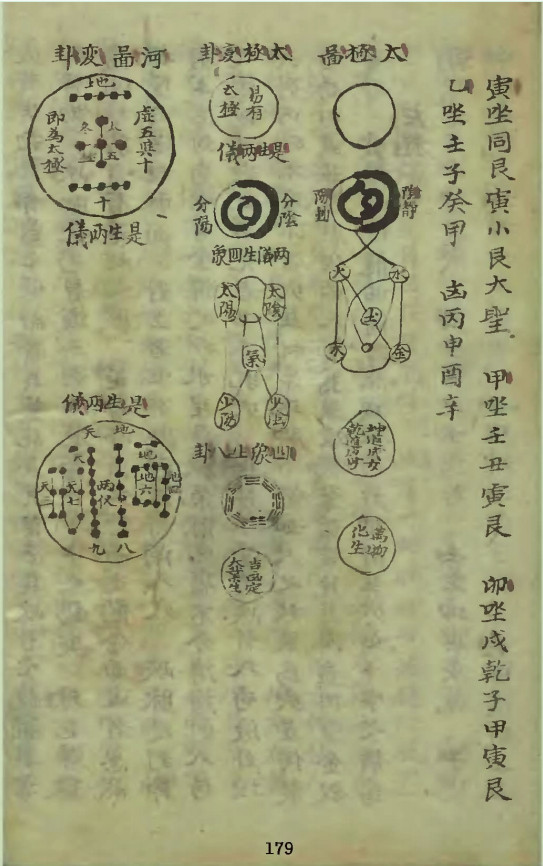 寅坐同艮寅小艮大聖 甲坐壬丑寅艮 卯坐戌乾子甲寅艮
乙坐壬子癸甲 凶丙申酉辛
太極啚
陰靜
陽動
水
火
土
金
木
坤道成女
乾道成男
萬物
化生
太極変卦
易有
太極
是生兩儀
分陰
分陽
両儀生四象
太陰
太陽
氣
少陰
少陽
四象生八卦
吉凶定
大業生
河啚変卦
地
虛五與十
五
即為太極
十
是生兩儀
是生兩儀
地
天
地
地四
地六
天
天七
天三
八
九
179